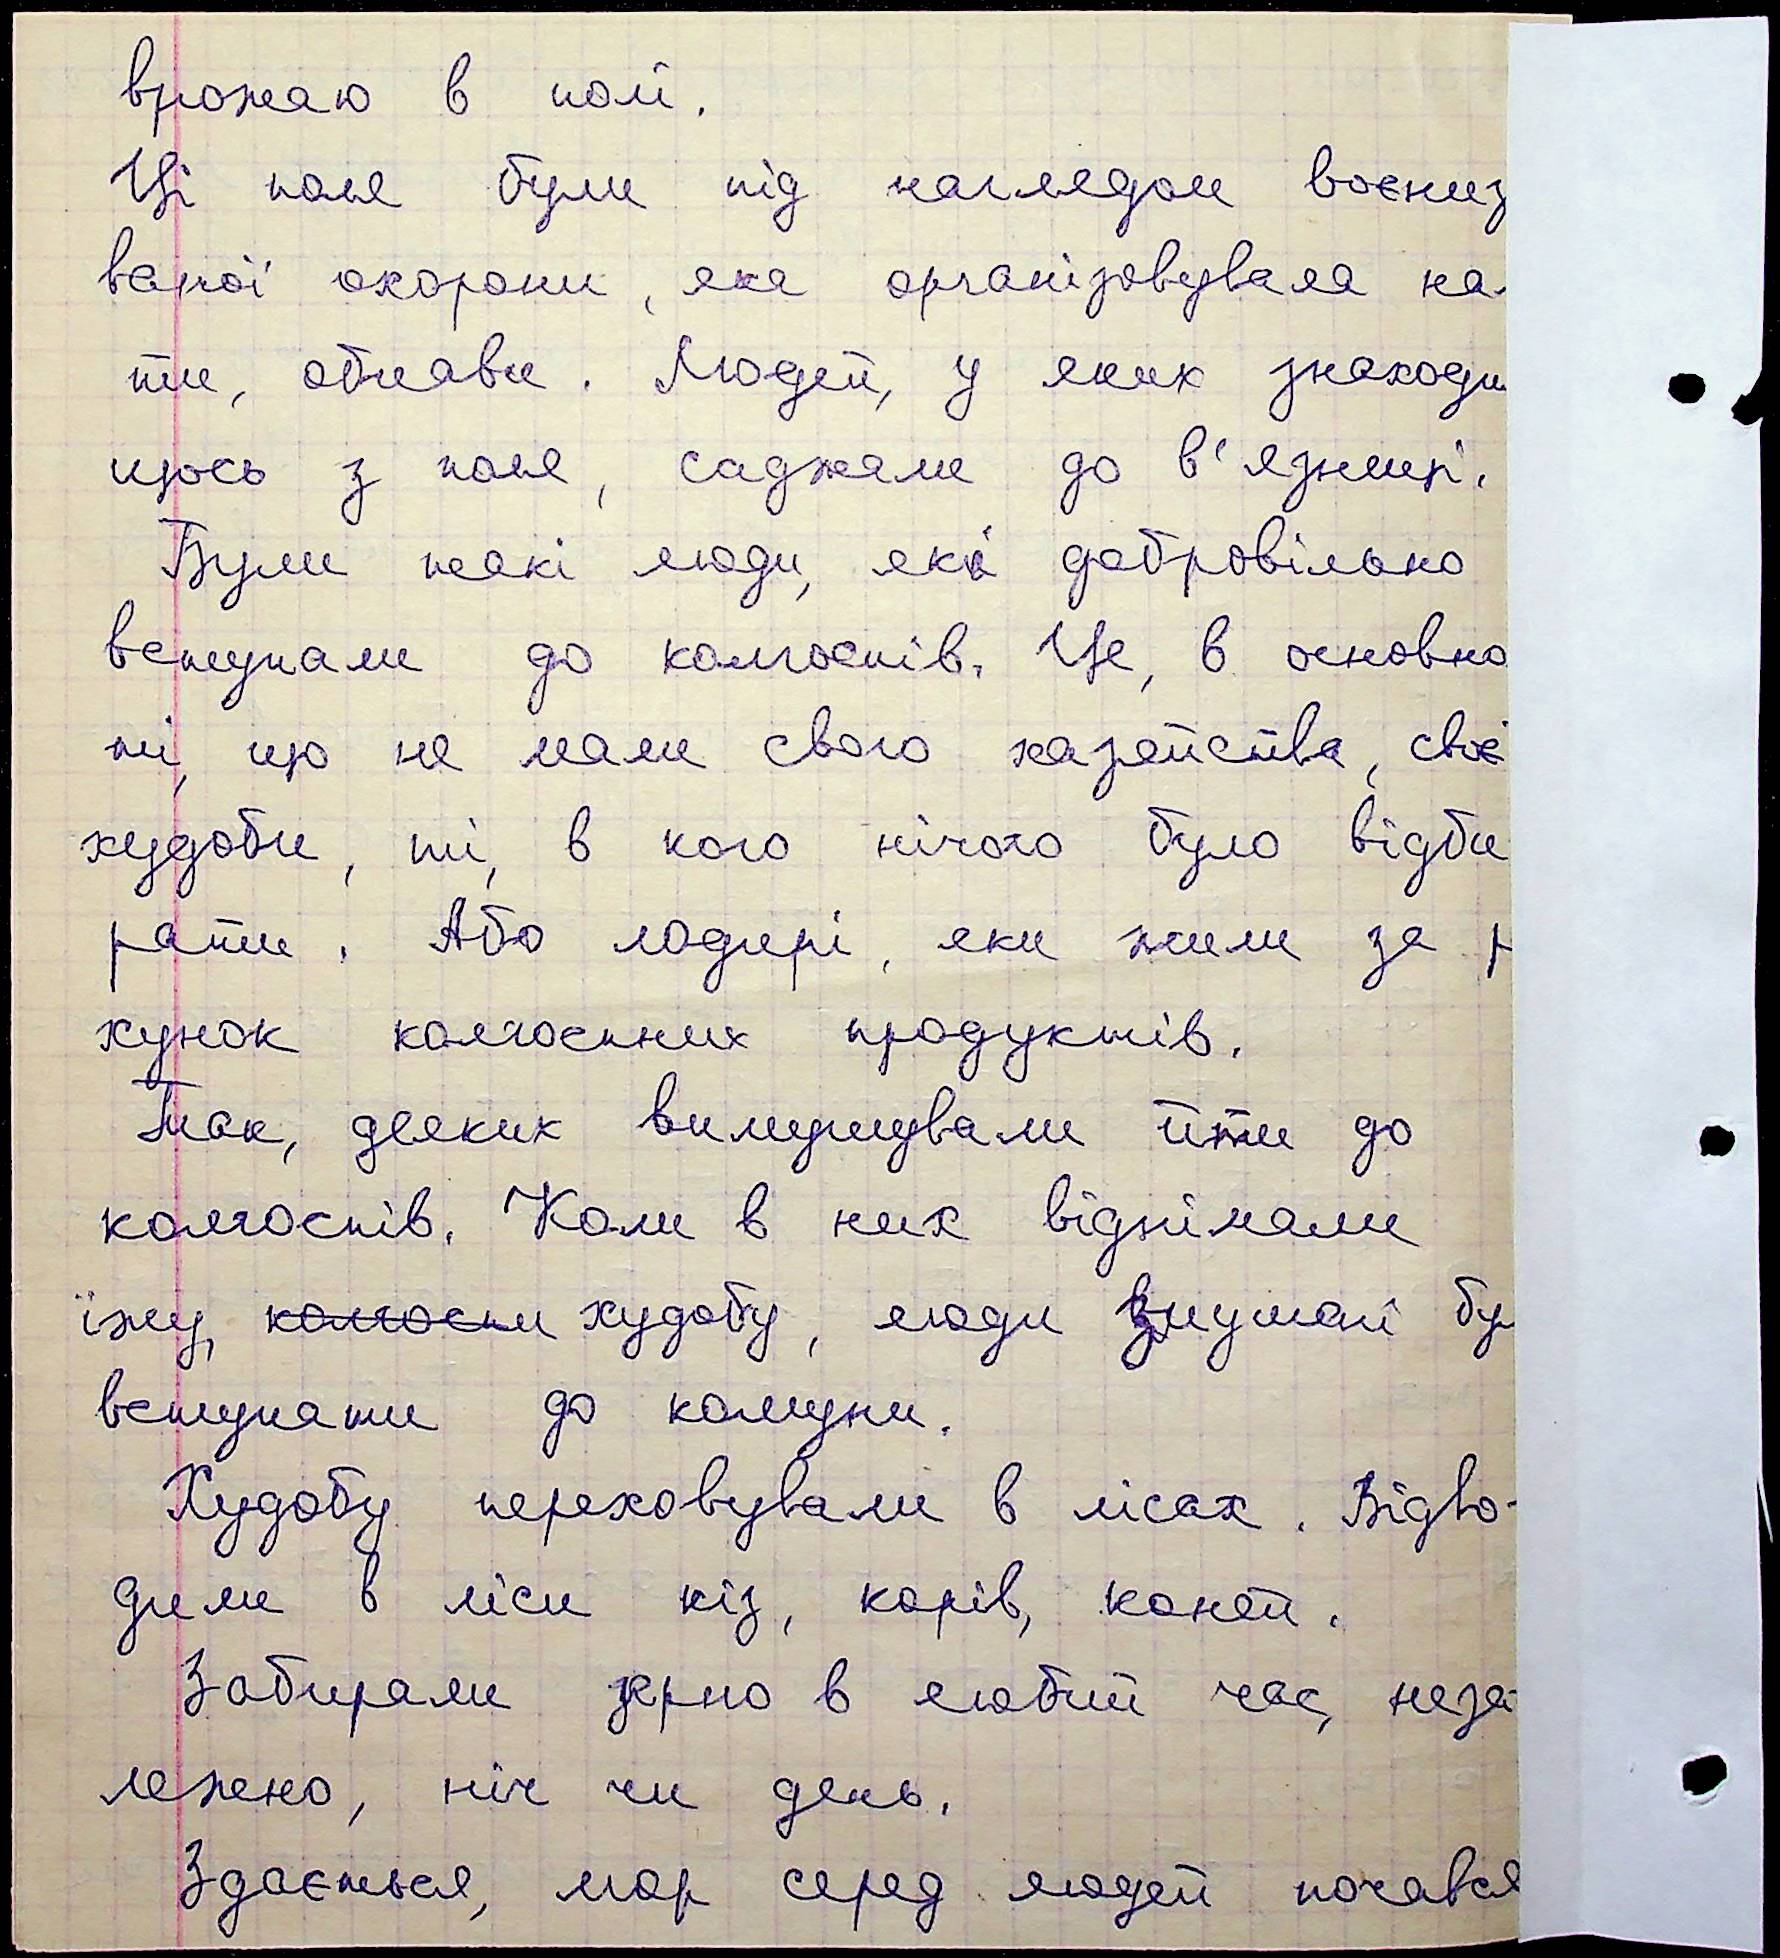 врожаю в полі.
Ці поля були під наглядом воєниз
ваної охорони, яка організовувала на
ти, облави. Людей, у яких знаходи
щось з поля, саджали до в'язниці.
Були такі люди, які добровільно
вступали до колгоспів. Це, в основно
ті, що не мали свого хазяйства, своє
худоби, ті, в кого нічого було відби
рати. Або лодирі, яки жили за р
хунок колгоспних продуктів.
Так, деяких вимушували йти до
колгоспів. Коли в них віднімали
їжу, колгоспи худобу, люди змушені бу
вступати до комуни.
Худобу переховували в лісах. Відво-
дили в ліси кіз, корів, коней.
Забирали зерно в любий час, неза
лежно, ніч чи день.
Здається, мор серед людей почався